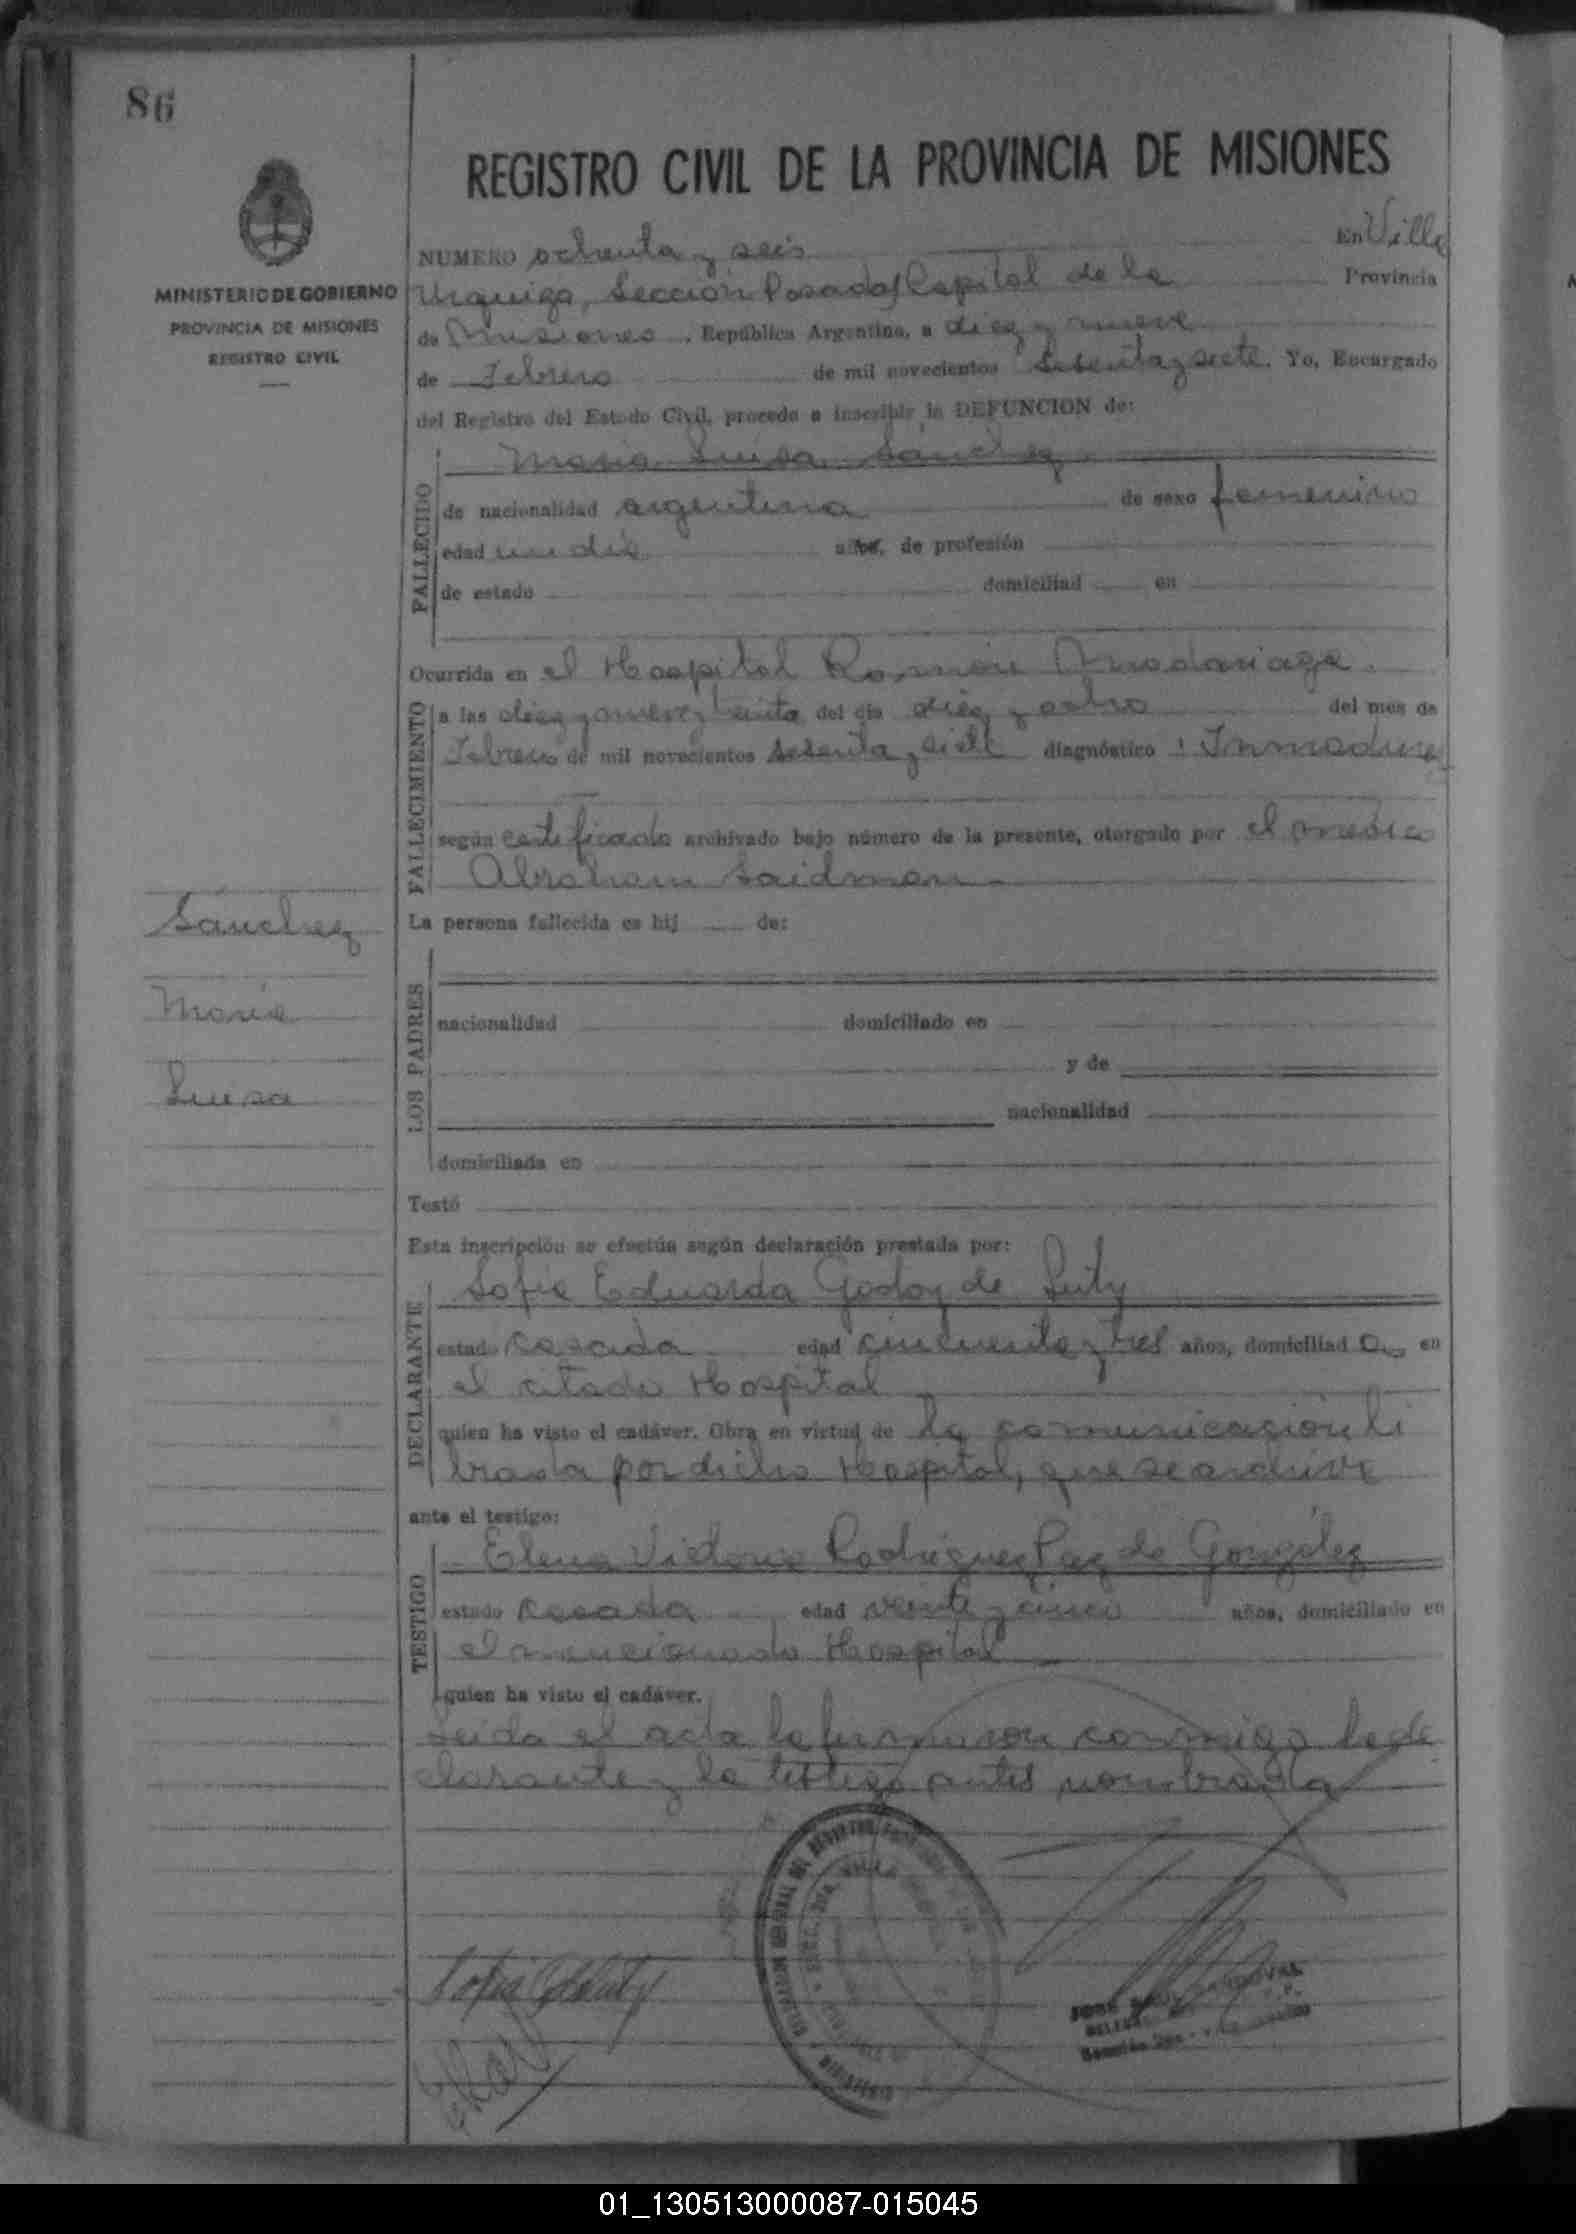 86
REGISTRO CIVIL DE LA PROVINCIA DE MISIONES
MINISTERIO DE GOBIERNO
PROVINCIA DE MISIONES
REGISTRO CIVIL
NUMERO ochenta y seis En Villa
Urquiza, Sección Posadas Capital de la Provincia
de Misiones, República Argentina, a diez y nueve
de Febrero de mil novecientos sesenta y siete. Yo, Encargado
del Registro del Estado Civil, procedo a inscribir la DEFUNCION de:
FALLECIDO
María Luisa Sánchez
de nacionalidad argentina de sexo femenino
edad un día años, de profesión
de estado domiciliad en
Ocurrida en el Hospital Ramón Madariaga.
FALLECIMIENTO
a las diez y nueve y treinta del día diez y ocho del mes de
Febrero de mil novecientos sesenta y siete diagnóstico: Inmadurez
según certificado archivado bajo número de la presente, otorgado por el médico
Abraham Saidman
Sánchez
María
Luisa
La persona fallecida es hij de:
LOS PADRES
nacionalidad domiciliado en
y de
nacionalidad
domiciliada en
Testó
Esta inscripción se efectúa según declaración prestada por:
DECLARANTE
Sofía Eduarda Godoy de Luty
estado casada edad cincuenta y tres años, domiciliad a en
el citado Hospital
quien ha visto el cadáver. Obra en virtud de la comunicación li
brada por dicho Hospital, que se archiva
ante el testigo:
TESTIGO
Elena Victoria Rodríguez Paz de González
estado casada edad veinte y cinco años, domiciliado en
el mencionado Hospital
quien ha visto el cadáver.
Leída el acta la firmaron conmigo la de
clarante y la testigo antes nombrada
VILLA
SANDOVAL
01_130513000087-015045